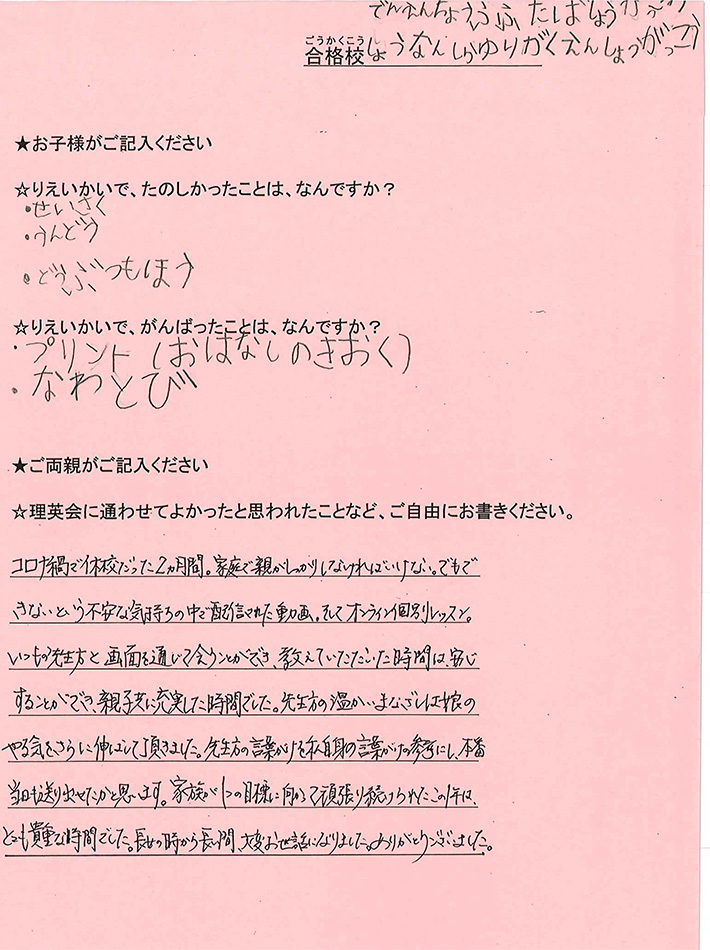 でんえんちょうふふたばしょうがっこう
ごうかくこう
合格校 しょうなんしらゆりがくえんしょうがっこう
★お子様がご記入ください
☆りえいかいで、たのしかったことは、なんですか？
・せいさく
・うんどう
・どうぶつもほう
☆りえいかいで、がんばったことは、なんですか？
・プリント(おはなしのきおく)
・なわとび
★ご両親がご記入ください
☆理英会に通わせてよかったと思われたことなど、ご自由にお書きください。
コロナ禍で休校だった2ヵ月間。家庭で親がしっかりしなければいけない。でもで
きないという不安な気持ちの中で配信された動画。そしてオンライン個別レッスン。
いつもの先生方と画面を通じて会うことができ、教えていただいた時間は、安心
することができ、親子共に充実した時間でした。先生方の温かいまなざしは娘の
やる気をさらに伸ばして頂きました。先生方の言葉がけを私自身の言葉がけの参考にし、本番
当日も送り出せたかと思います。家族が1つの目標に向かって頑張り続けられたこの1年は、
とても貴重な時間でした。長女の時から長い間、大変お世話になりました。ありがとうございました。